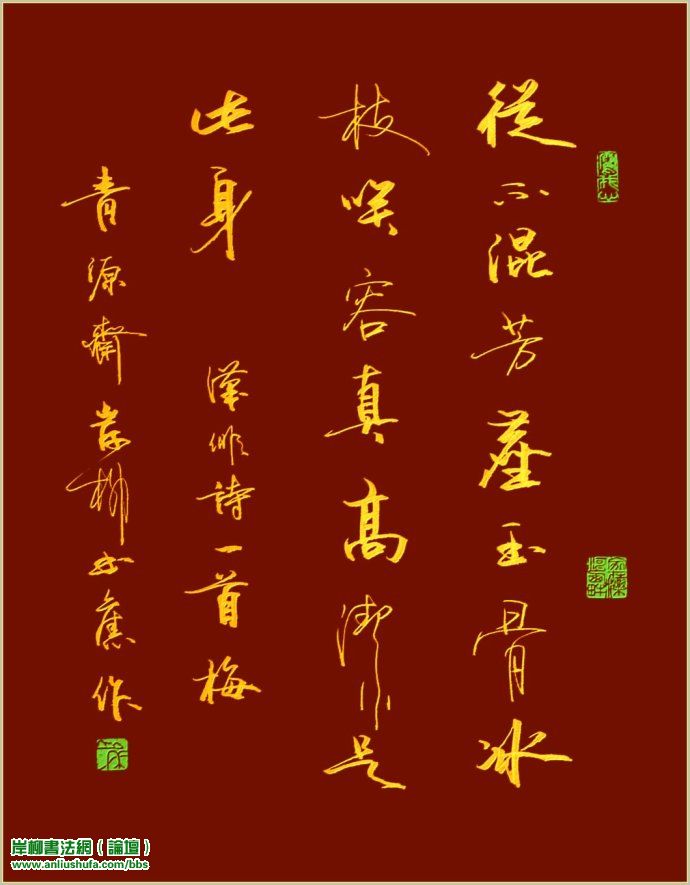 從不混芳塵玉骨冰
枝咲容真高潔是
此身 漢俳詩一首梅
青源齋岸柳书舊作
岸柳書法網(論壇)
www.anliushufa.com/bbs